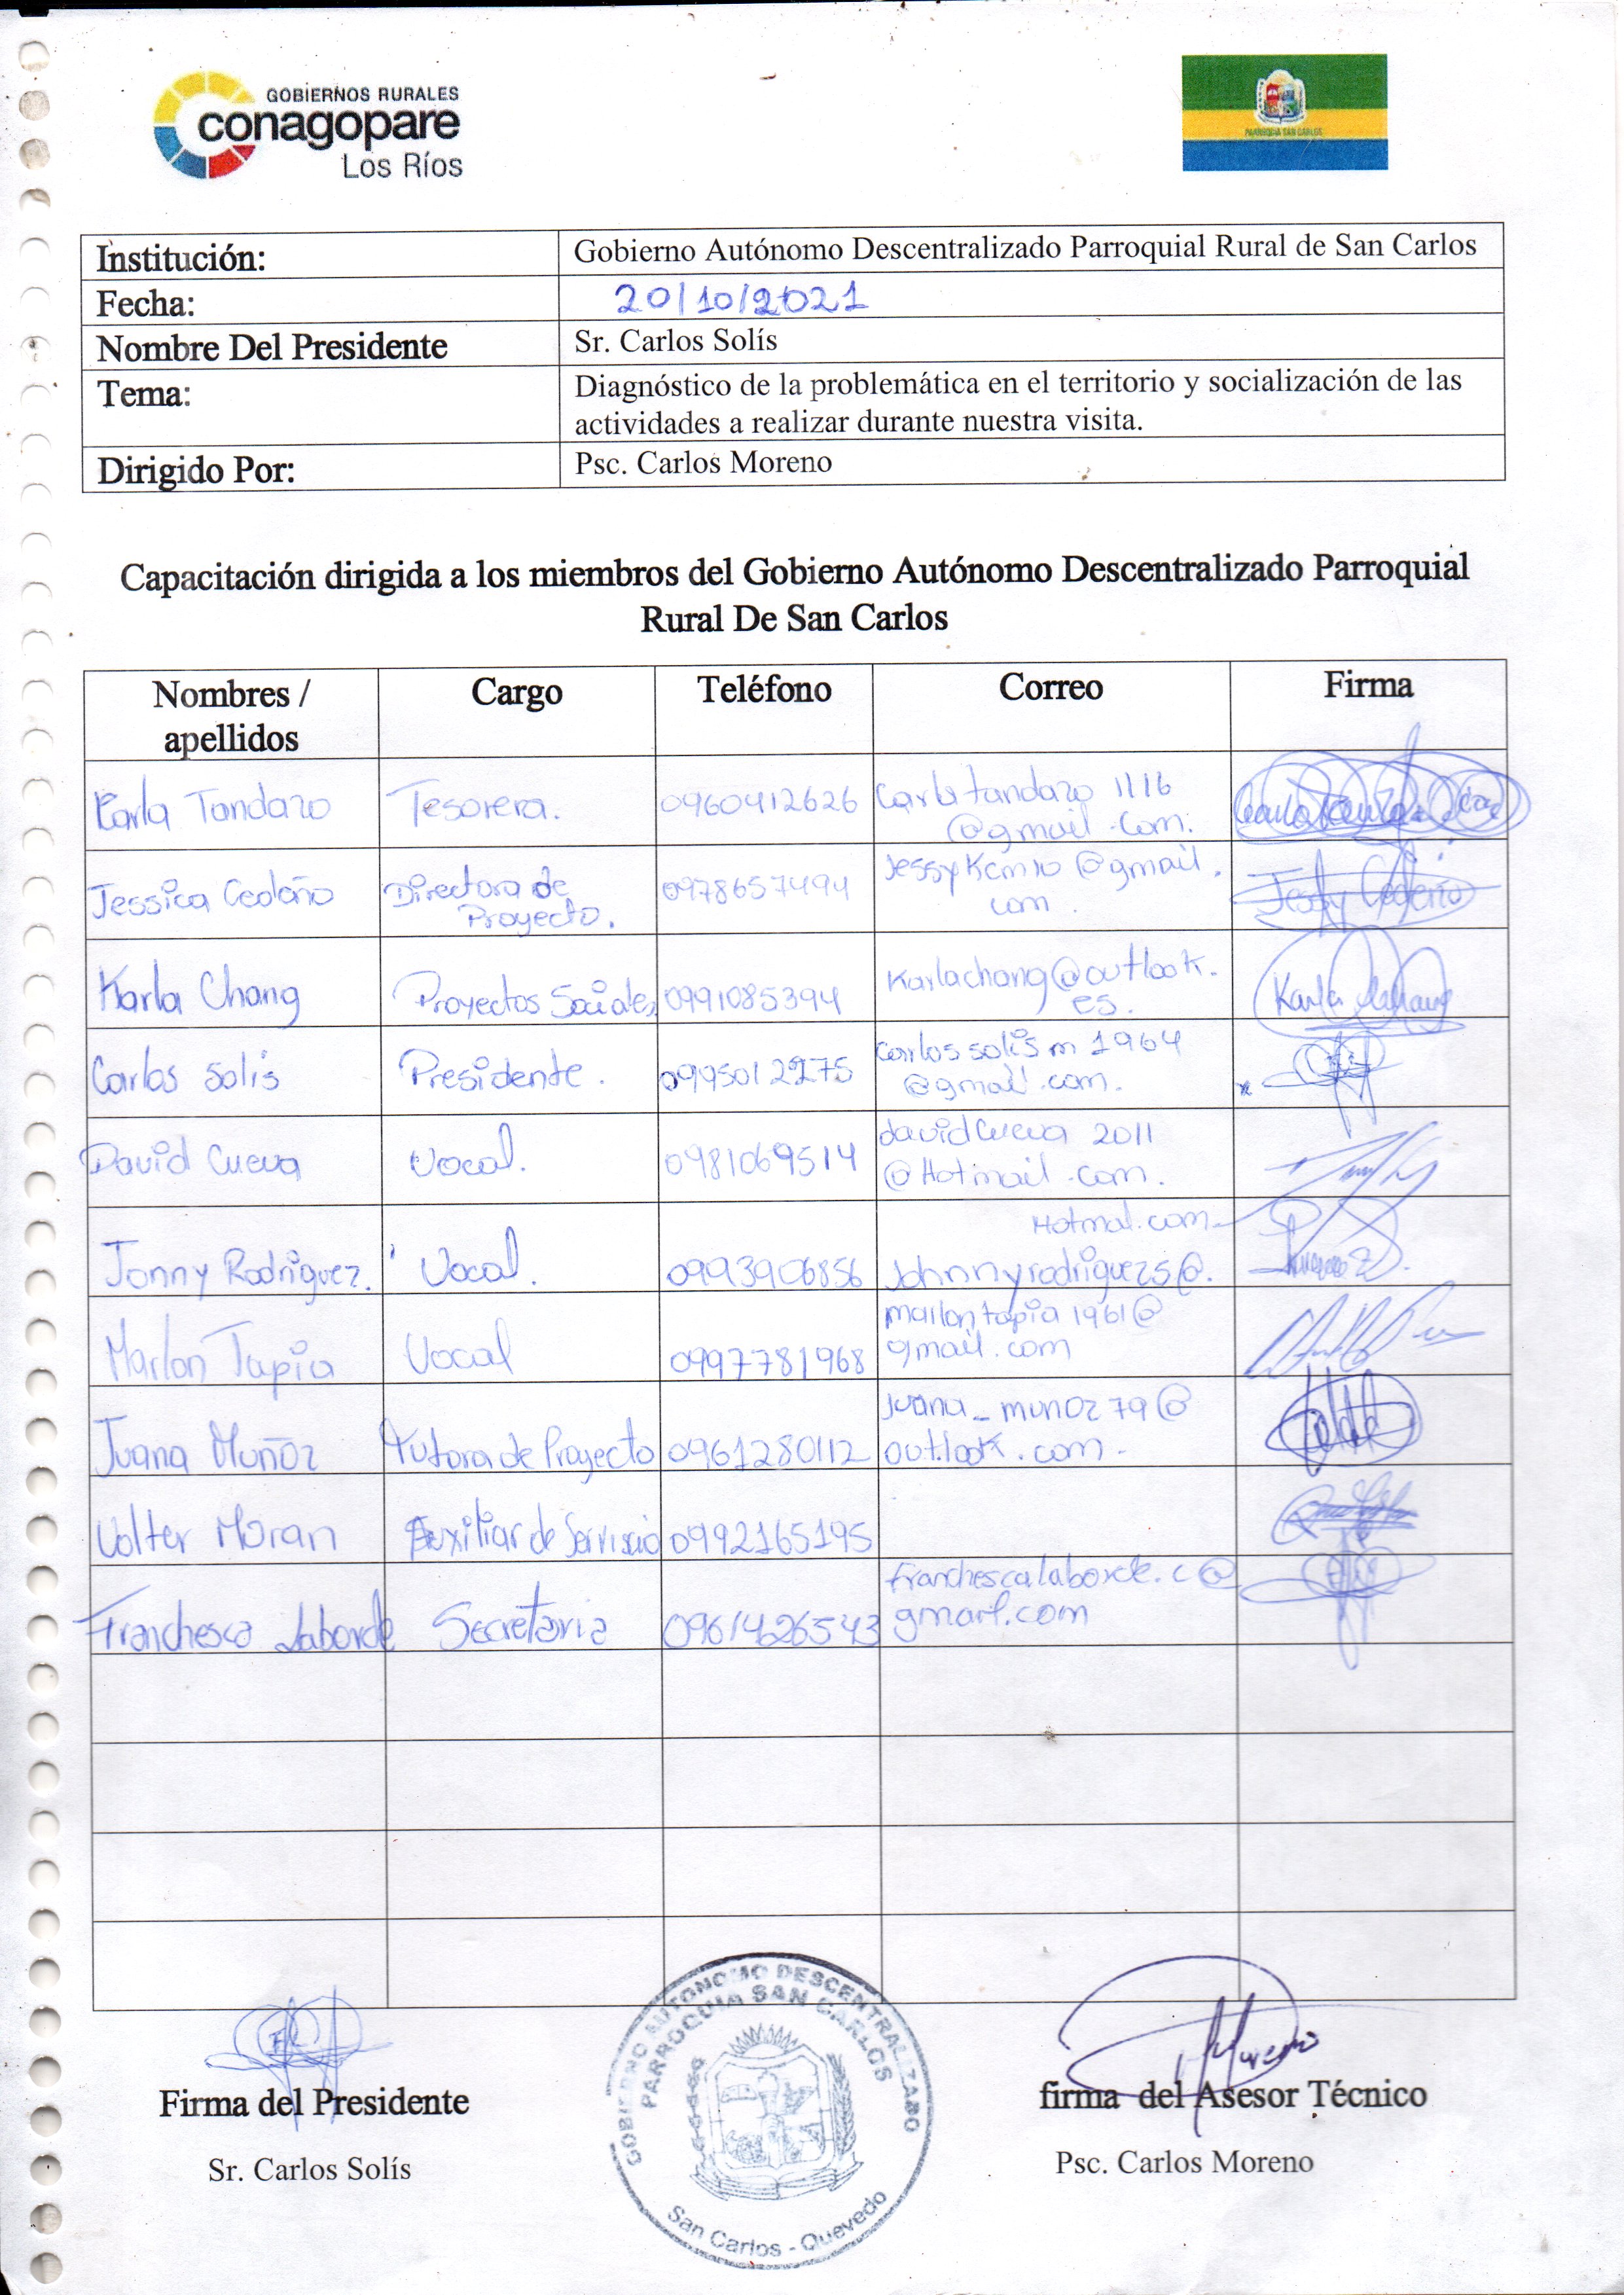 GOBIERNOS RURALES
conagopare
Los Ríos
PARROQUIA SAN CARLOS
Institución: Gobierno Autónomo Descentralizado Parroquial Rural de San Carlos
Fecha: 20/10/2021
Nombre Del Presidente Sr. Carlos Solís
Tema: Diagnóstico de la problemática en el territorio y socialización de las
actividades a realizar durante nuestra visita.
Dirigido Por: Psc. Carlos Moreno
Capacitación dirigida a los miembros del Gobierno Autónomo Descentralizado Parroquial
Rural De San Carlos
Nombres / Cargo Teléfono Correo Firma
apellidos
Karla Tandazo Tesorera. 0960412626 Carlatandazo 1116
@gmail.com.
Jessica Cedeño Directora de 0978657494 JessyKcm10@gmail.
Proyecto. com.
Karla Chang Proyectos Sociales 0991085394 Karlachang@outlook. Karla Chang
es.
Carlos Solis Presidente. 0995012275 carlos solis m 1964
@gmail.com.
David Cueva Vocal. 0981069514 davidCueva 2011
@Hotmail.com.
Hotmal.com
Jonny Rodriguez. Vocal. 0993906856 Johnnyrodriguez5@.
Marlon Tapia Vocal 0997781968 marlontapia1961@
gmail.com
Juana Muñoz Tutora de Proyecto 0961280112 juana_munoz79@
outlook.com.
Volter Moran Auxiliar de Serviscio 0992165195
Franchesca Laborde Secretaria 0961426543 franchescalaborde.c@
gmail.com
GOBIERNO AUTONOMO DESCENTRALIZADO
PARROQUIA SAN CARLOS
San Carlos - Quevedo
Moreno
Firma del Presidente firma del Asesor Técnico
Sr. Carlos Solís Psc. Carlos Moreno